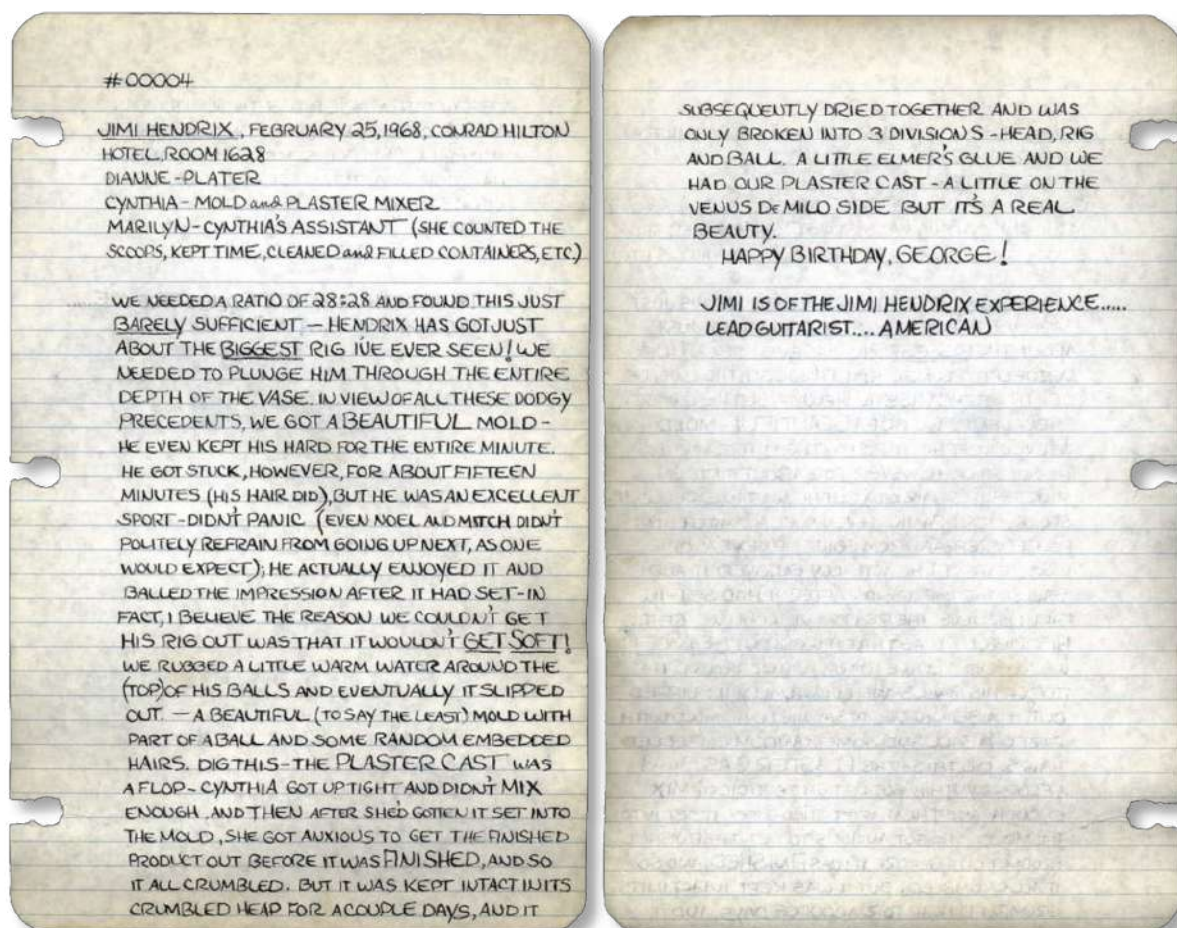 #00004
JIMI HENDRIX, FEBRUARY 25, 1968, CONRAD HILTON
HOTEL, ROOM 1628
DIANNE - PLATER
CYNTHIA - MOLD and PLASTER MIXER
MARILYN - CYNTHIA'S ASSISTANT (SHE COUNTED THE
SCOOPS, KEPT TIME, CLEANED and FILLED CONTAINERS, ETC.)
WE NEEDED A RATIO OF 28:28 AND FOUND THIS JUST
BARELY SUFFICIENT — HENDRIX HAS GOT JUST
ABOUT THE BIGGEST RIG I'VE EVER SEEN! WE
NEEDED TO PLUNGE HIM THROUGH THE ENTIRE
DEPTH OF THE VASE. IN VIEW OF ALL THESE DODGY
PRECEDENTS, WE GOT A BEAUTIFUL MOLD -
HE EVEN KEPT HIS HARD FOR THE ENTIRE MINUTE.
HE GOT STUCK, HOWEVER, FOR ABOUT FIFTEEN
MINUTES (HIS HAIR DID), BUT HE WAS AN EXCELLENT
SPORT - DIDN'T PANIC (EVEN NOEL AND MITCH DIDN'T
POLITELY REFRAIN FROM GOING UP NEXT, AS ONE
WOULD EXPECT); HE ACTUALLY ENJOYED IT AND
BALLED THE IMPRESSION AFTER IT HAD SET - IN
FACT, I BELIEVE THE REASON WE COULDN'T GET
HIS RIG OUT WAS THAT IT WOULDN'T GET SOFT!
WE RUBBED A LITTLE WARM WATER AROUND THE
(TOP) OF HIS BALLS AND EVENTUALLY IT SLIPPED
OUT — A BEAUTIFUL (TO SAY THE LEAST) MOLD WITH
PART OF A BALL AND SOME RANDOM EMBEDDED
HAIRS. DIG THIS - THE PLASTER CAST WAS
A FLOP - CYNTHIA GOT UPTIGHT AND DIDN'T MIX
ENOUGH, AND THEN AFTER SHE'D GOTTEN IT SET INTO
THE MOLD, SHE GOT ANXIOUS TO GET THE FINISHED
PRODUCT OUT BEFORE IT WAS FINISHED, AND SO
IT ALL CRUMBLED. BUT IT WAS KEPT INTACT IN ITS
CRUMBLED HEAP FOR A COUPLE DAYS, AND IT
SUBSEQUENTLY DRIED TOGETHER AND WAS
ONLY BROKEN INTO 3 DIVISIONS - HEAD, RIG
AND BALL. A LITTLE ELMER'S GLUE AND WE
HAD OUR PLASTER CAST - A LITTLE ON THE
VENUS DE MILO SIDE BUT IT'S A REAL
BEAUTY.
HAPPY BIRTHDAY, GEORGE!
JIMI IS OF THE JIMI HENDRIX EXPERIENCE.....
LEAD GUITARIST.... AMERICAN